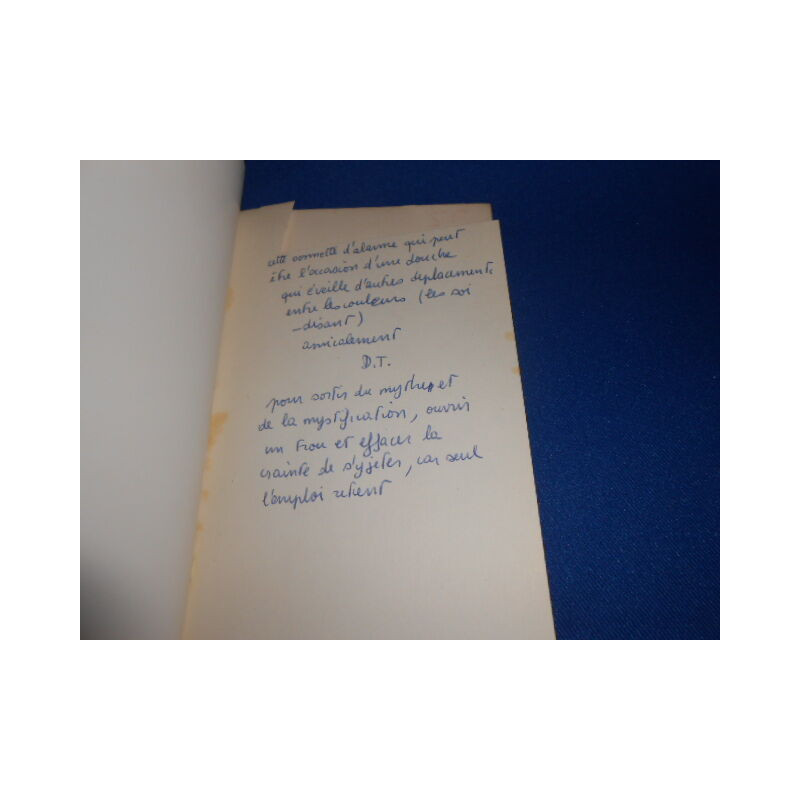 cette sonnette d'alarme qui peut
être l'occasion d'une douche
qui éveille d'autres déplacements
entre les couleurs (les soi
-disant)
amicalement
D.T.
pour sortir du mythe et
de la mystification, ouvrir
un trou et effacer la
crainte de s'y jeter, car seul
l'emploi retient